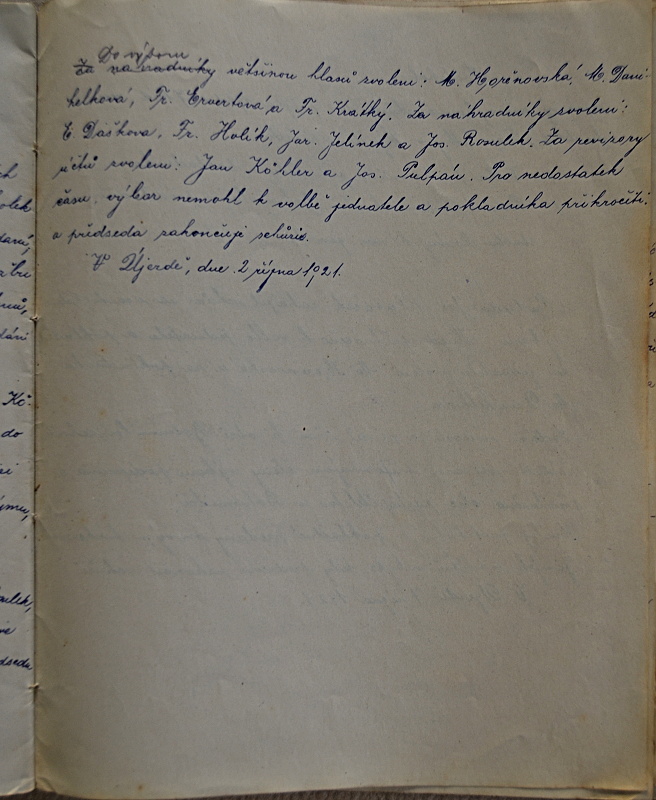 Do výboru
Za náhradníky většinou hlasů zvoleni: M. Hořenovská, M. Dani-
helková, Fr. Ervertová a Fr. Krátký. Za náhradníky zvoleni:
E. Dášková, Fr. Holík, Jar. Jelínek a Jos. Rosulek. Za revizory
účtů zvoleni: Jan Köhler a Jos. Pulpán. Pro nedostatek
času výbor nemohl k volbě jednatele a pokladníka přikročiti
a předseda zakončuje schůzi.
V Újezdě, dne 2 října 1921.
do